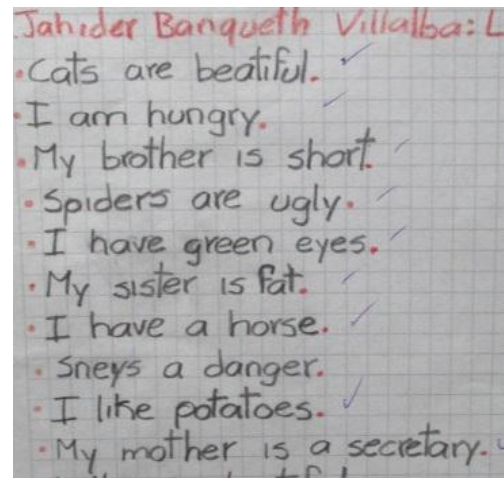 Jahider Banqueth Villalba: L
• Cats are beatiful.
• I am hungry.
• My brother is short.
• Spiders are ugly.
• I have green eyes.
• My sister is fat.
• I have a horse.
• Sneys a danger.
• I like potatoes.
• My mother is a secretary.